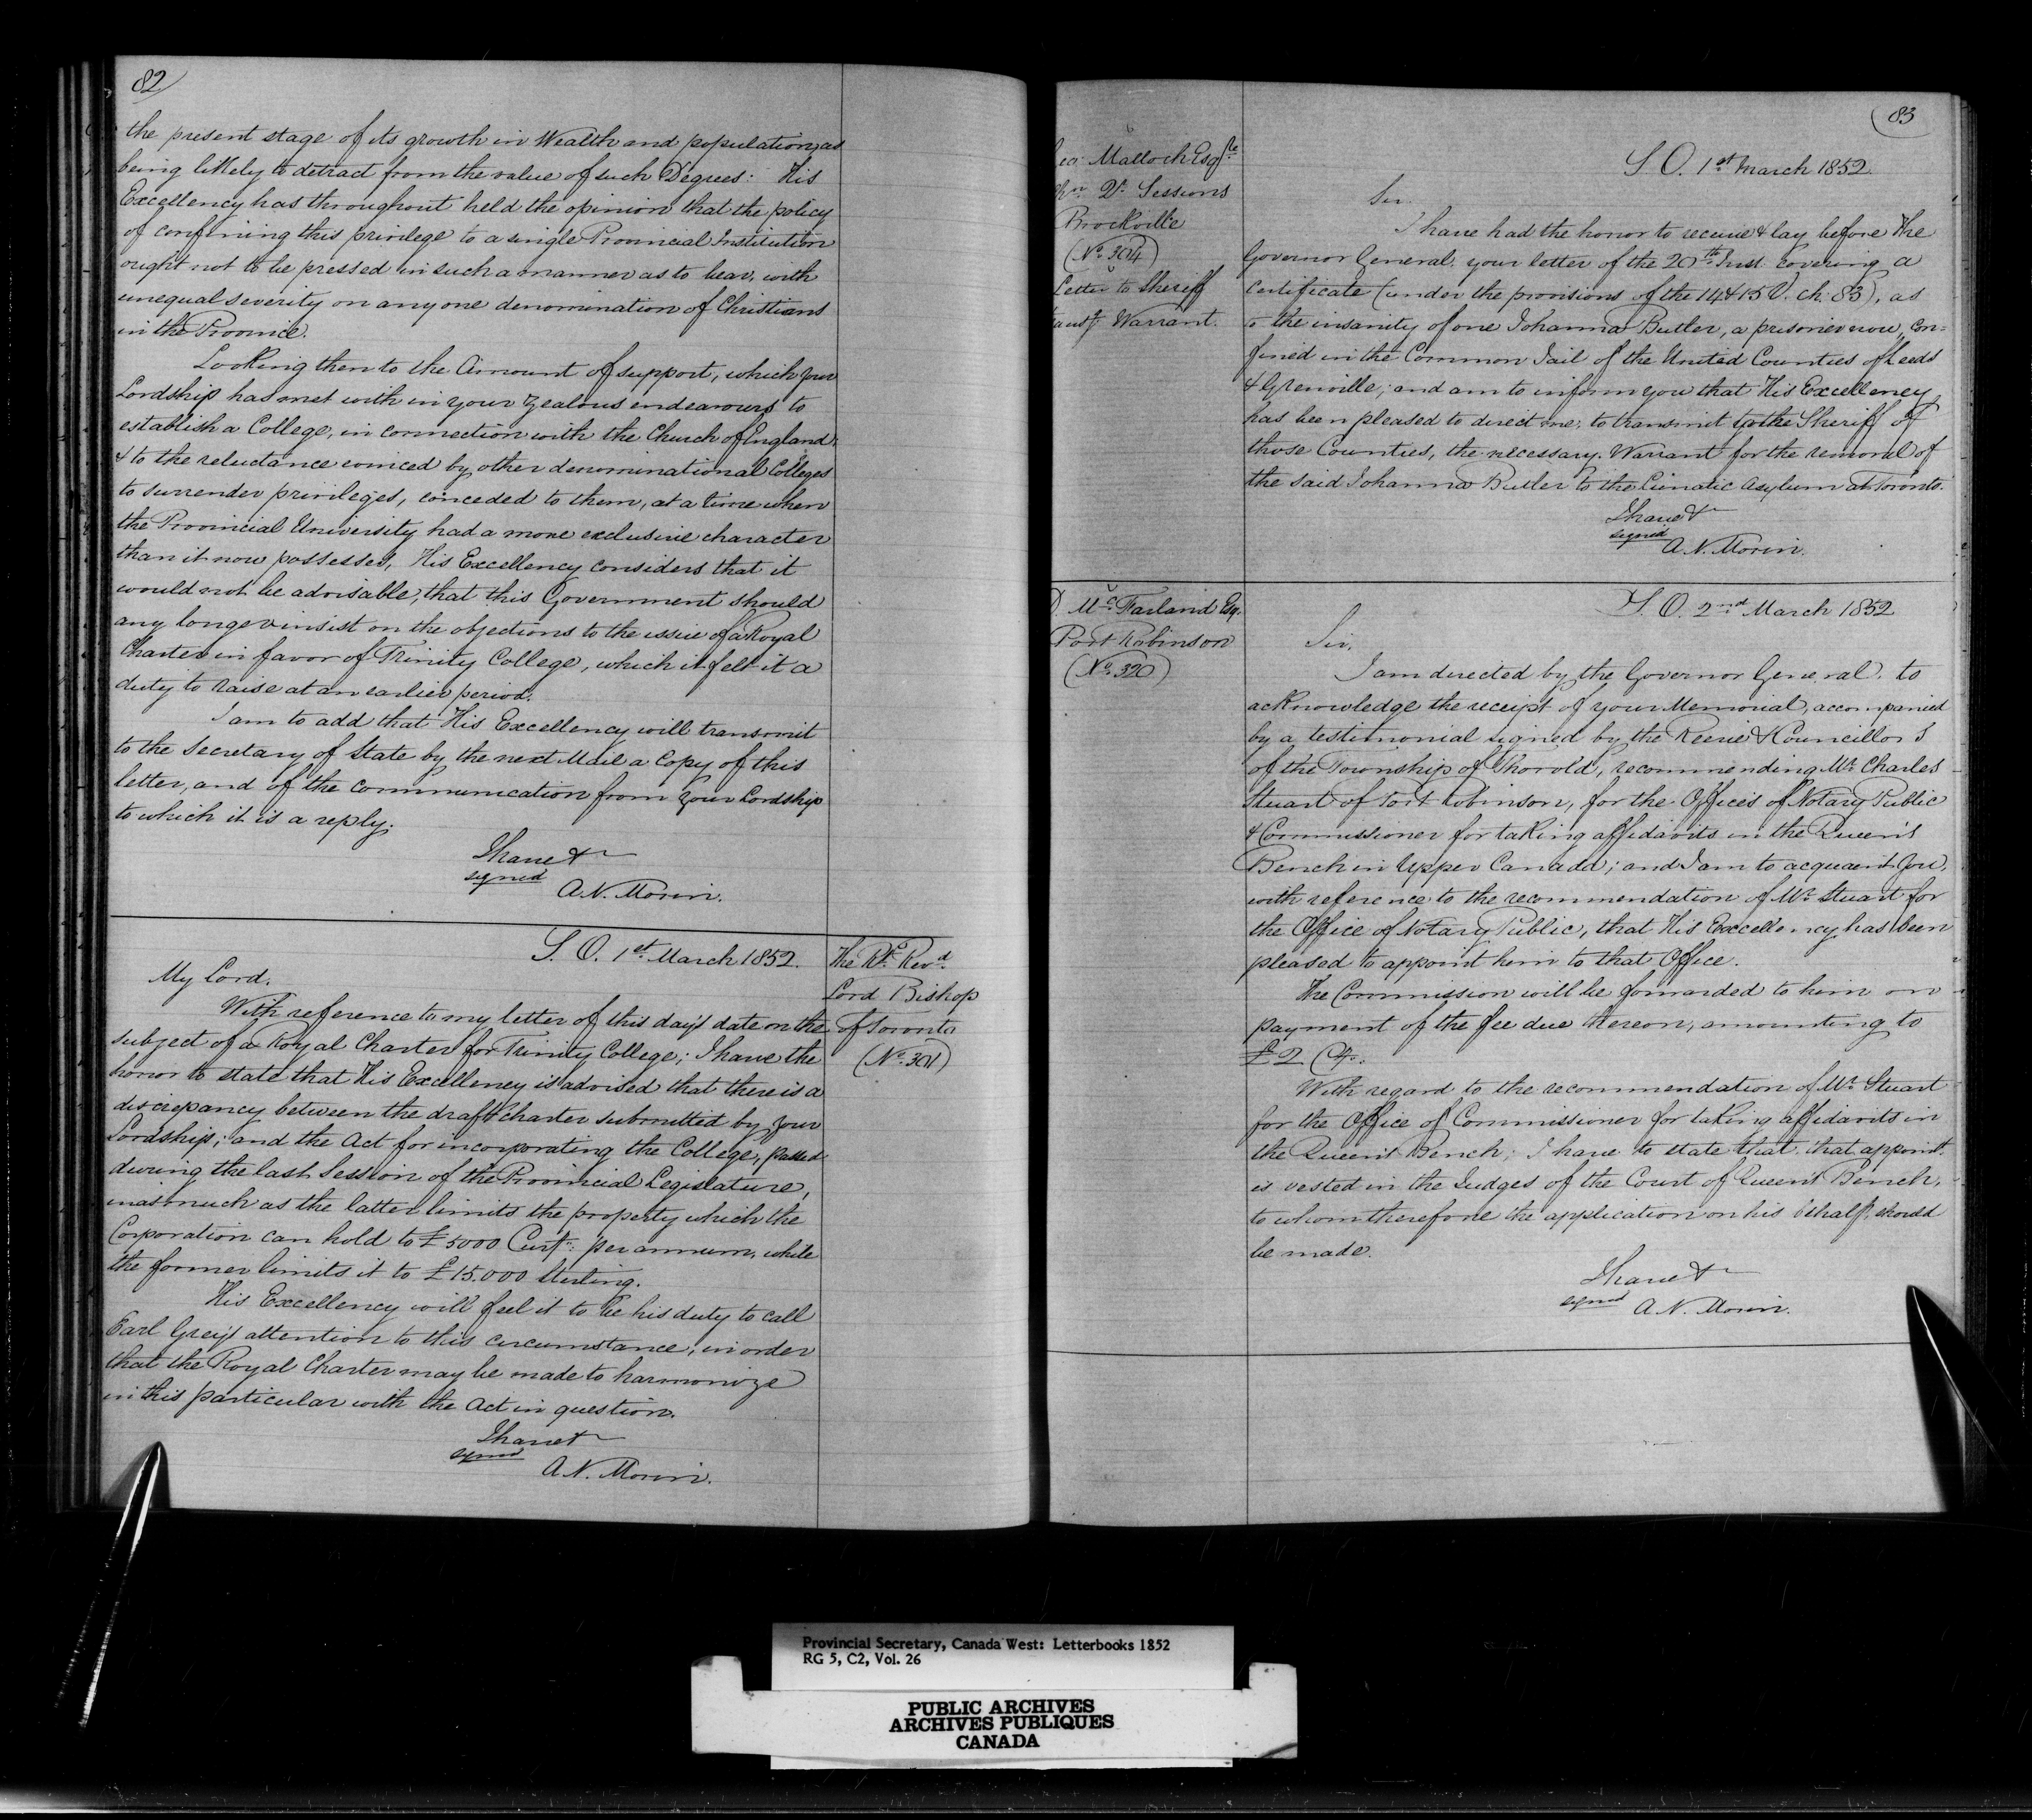 82
the present stage of its growth in Wealth and population, as
being likely to detract from the value of such Degrees: His
Excellency has throughout held the opinion that the policy
of confining this privilege to a single Provincial Institution
ought not to be pressed in such a manner as to bear, with
unequal severity on any one denomination of Christians
in the Province.
Looking then to the Amount of support, which your
Lordship has met with in your zealous endeavours to
establish a College, in connection with the Church of England
& to the reluctance evinced by other denominational Colleges
to surrender privileges, conceded to them, at a time when
the Provincial University had a more exclusive character
than it now possesses, His Excellency considers that it
would not be advisable, that this Government should
any longer insist on the objections to the issue of a Royal
Charter in favor of Trinity College, which it felt it a
duty to raise at an earlier period.
I am to add that His Excellency will transmit
to the Secretary of State by the next Mail a Copy of this
letter, and of the communication from your Lordship
to which it is a reply.
I have &
signed
A. N. Morin.
S. O. 1st March 1852.
The Rt. Revd.
Lord Bishop
of Toronto
(No. 301)
My Lord.
With reference to my letter of this day's date on the
subject of a Royal Charter for Trinity College; I have the
honor to state that His Excellency is advised that there is a
discrepancy between the draft charter submitted by your
Lordship; and the Act for incorporating the College, passed
during the last Session of the Provincial Legislature,
inasmuch as the latter limits the property which the
Corporation can hold to £5000 Curcy. per annum, while
the former limits it to £15.000 Sterling.
His Excellency will feel it to be his duty to call
Earl Grey's attention to this circumstance, in order
that the Royal Charter may be made to harmonize
in this particular with the Act in question.
I have &
signed
A. N. Morin.
83
Malloch Esqre
Qr. Sessions
Brockville
(No. 304)
Letter to Sheriff
Warrant.
S. O. 1st March 1852
Sir.
I have had the honor to receive & lay before the
Governor General, your letter of the 20th Inst. covering a
Certificate (under the provisions of the 14 & 15 V. ch: 83), as
to the insanity of one Johanna Butler, a prisoner now, con=
fined in the Common Jail of the United Counties of Leeds
& Grenville; and am to inform you that His Excellency
has been pleased to direct me, to transmit to the Sheriff of
those Counties, the necessary Warrant for the removal of
the said Johanna Butler to the Lunatic Asylum at Toronto.
I have &
signed
A. N. Morin.
D. McFarland Esq.
Port Robinson
(No. 320)
S. O. 2nd March 1852
Sir,
I am directed by the Governor General, to
acknowledge the receipt of your Memorial, accompanied
by a testimonial signed by the Reeve & Councillors
of the Township of Thorold, recommending Mr. Charles
Stuart of Port Robinson, for the Offices of Notary Public
& Commissioner for taking affidavits in the Queen's
Bench in Upper Canada; and I am to acquaint you,
with reference to the recommendation of Mr. Stuart for
the Office of Notary Public, that His Excellency has been
pleased to appoint him to that Office.
The Commission will be forwarded to him on
payment of the fee due thereon, amounting to
£2
With regard to the recommendation of Mr. Stuart
for the Office of Commissioner for taking affidavits in
the Queen's Bench; I have to state that that appoint.
is vested in the Judges of the Court of Queen's Bench,
to whom therefore the application on his behalf, should
be made.
I have &
signed
A. N. Morin.
Provincial Secretary, Canada West: Letterbooks 1852
RG 5, C2, Vol. 26
PUBLIC ARCHIVES
ARCHIVES PUBLIQUES
CANADA